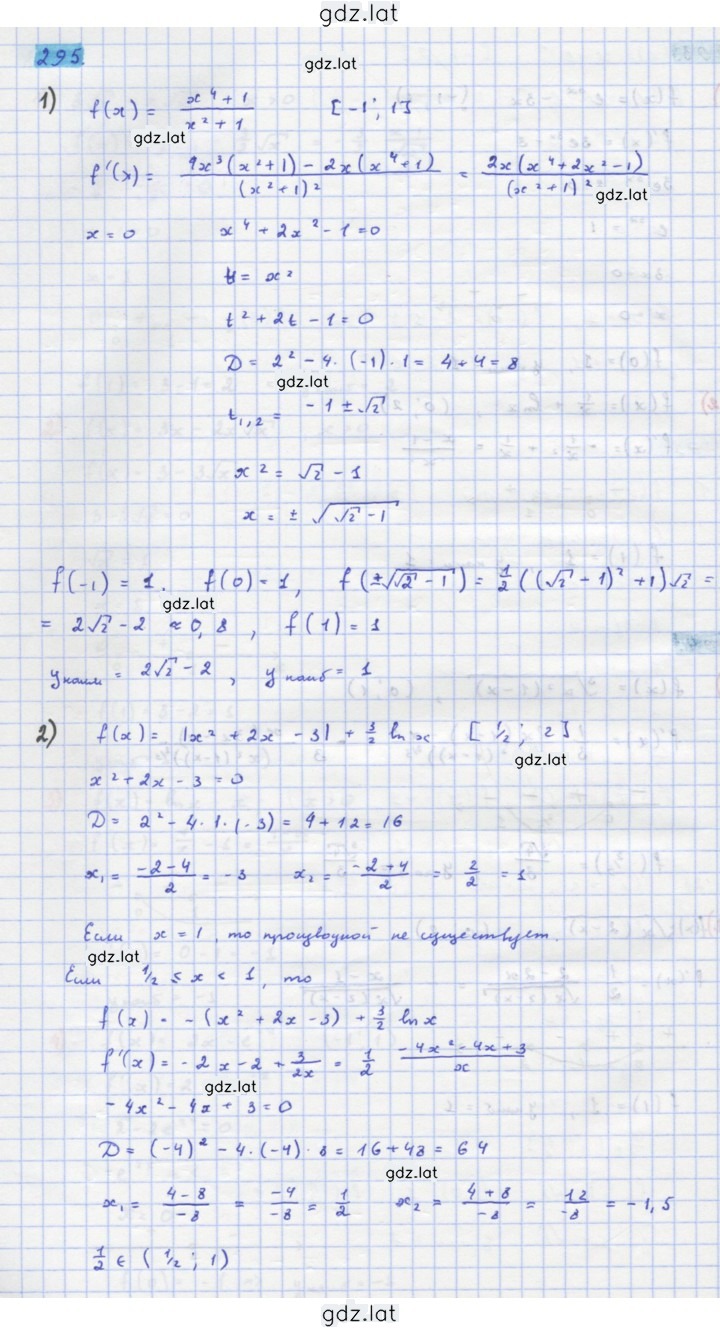 gdz.lat
295.
gdz.lat
1) f(x) = (x⁴ + 1)/(x² + 1) [-1; 1]
gdz.lat
f'(x) = (4x³(x²+1) - 2x(x⁴+1))/(x²+1)² = 2x(x⁴+2x²-1)/(x²+1)²
gdz.lat
x = 0 x⁴ + 2x² - 1 = 0
t = x²
t² + 2t - 1 = 0
D = 2² - 4 · (-1) · 1 = 4 + 4 = 8
gdz.lat
t₁,₂ = -1 ± √2
x² = √2 - 1
x = ± √(√2 - 1)
f(-1) = 1. f(0) = 1, f(±√(√2 - 1)) = 1/2 ((√2 + 1)² + 1)√2 =
gdz.lat
= 2√2 - 2 ≈ 0,8, f(1) = 1
y наим = 2√2 - 2, y наиб = 1
2) f(x) = |x² + 2x - 3| + 3/2 ln x [1/2; 2]
gdz.lat
x² + 2x - 3 = 0
D = 2² - 4 · 1 · (-3) = 4 + 12 = 16
x₁ = (-2-4)/2 = -3 x₂ = (-2+4)/2 = 2/2 = 1
Если x = 1, то производной не существует.
gdz.lat
Если 1/2 ≤ x < 1, то
f(x) = -(x² + 2x - 3) + 3/2 ln x
f'(x) = -2x - 2 + 3/(2x) = 1/2 (-4x² - 4x + 3)/x
gdz.lat
-4x² - 4x + 3 = 0
D = (-4)² - 4 · (-4) · 3 = 16 + 48 = 64
gdz.lat
x₁ = (4-8)/(-8) = (-4)/(-8) = 1/2 x₂ = (4+8)/(-8) = 12/(-8) = -1,5
1/2 ∈ (1/2; 1)
gdz.lat